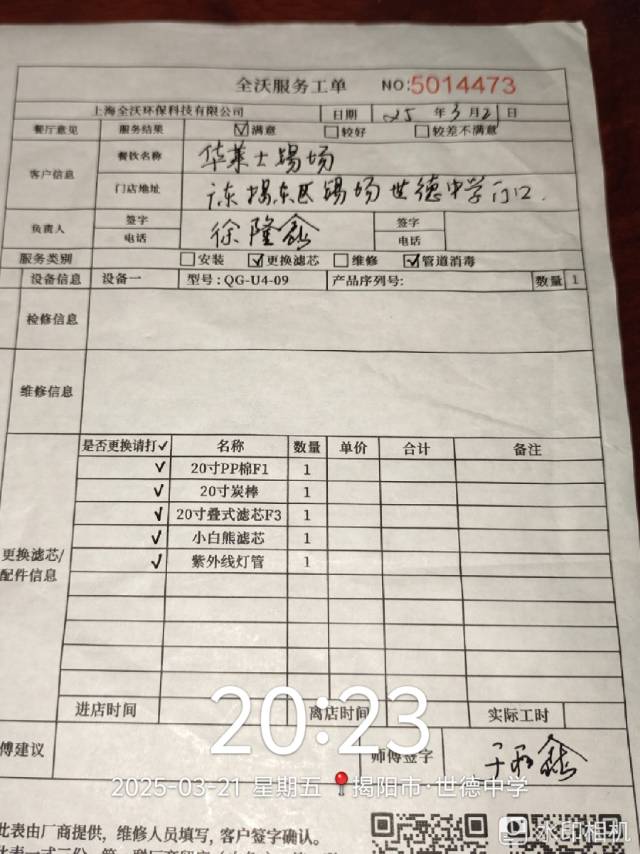 全沃服务工单 NO:5014473
上海全沃环保科技有限公司 日期 25 年 3 月 21 日
餐厅意见 服务结果 ☑满意 □较好 □较差不满意
客户信息 餐饮名称 华莱士锡场
门店地址 揭东区锡场世德中学门口.
负责人 签字 徐隆鑫 签字
电话 电话
服务类别 □安装 ☑更换滤芯 □维修 ☑管道消毒
设备信息 设备一 型号:QG-U4-09 产品序列号: 数量 1
检修信息
维修信息
更换滤芯/配件信息
是否更换请打✓ 名称 数量 单价 合计 备注
✓ 20寸PP棉F1 1
✓ 20寸炭棒 1
✓ 20寸叠式滤芯F3 1
✓ 小白熊滤芯 1
✓ 紫外线灯管 1
进店时间 离店时间 实际工时
20:23
傅建议 师傅签字
2025-03-21 星期五 揭阳市·世德中学
此表由厂商提供，维修人员填写，客户签字确认。
水印相机